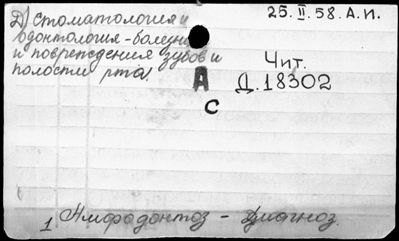 Д) Стоматология и
одонтология - болезни
и повреждения зубов и
полости рта.
25. II. 58. А. И.
Чит.
Д. 18302
А
С
1 Амфодонтоз - Диагноз.